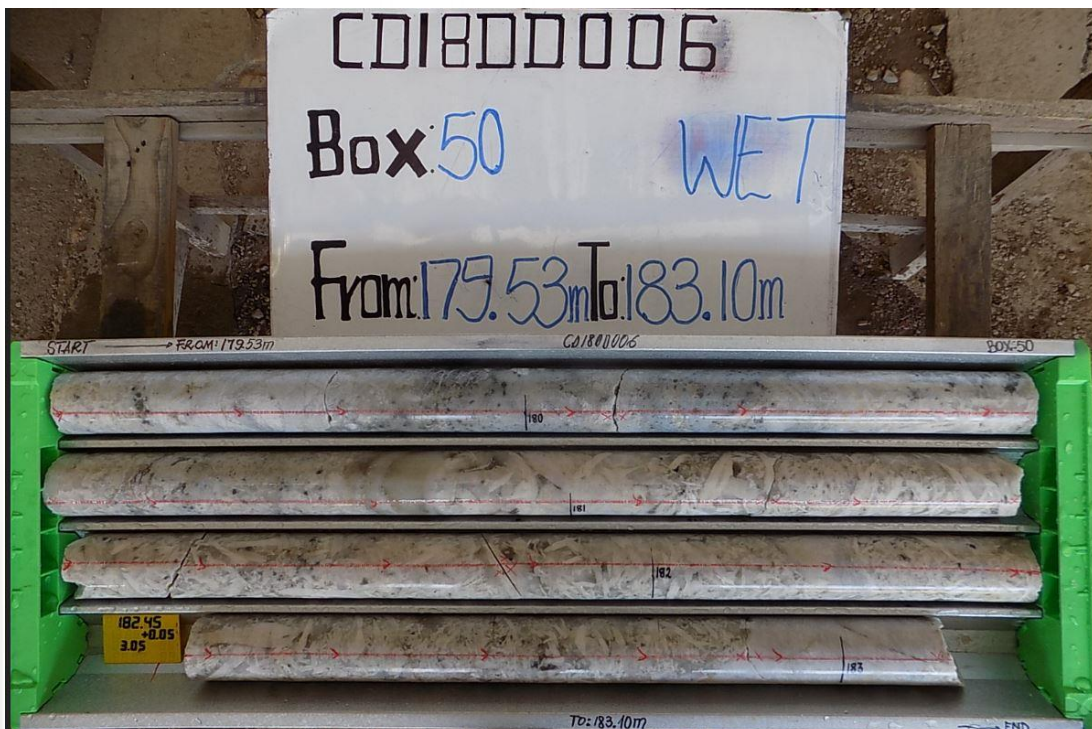 CD18DD006
Box: 50 WET
From: 179.53m To: 183.10m
START FROM: 179.53m CD18DD006 BOX-50
180
181
182
182.45
+0.05
3.05
183
TO: 183.10m END